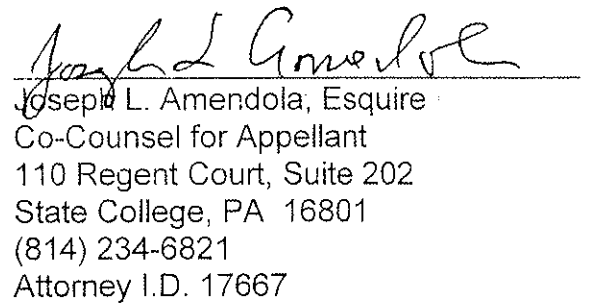 Joseph L Amendola
Joseph L. Amendola, Esquire
Co-Counsel for Appellant
110 Regent Court, Suite 202
State College, PA 16801
(814) 234-6821
Attorney I.D. 17667